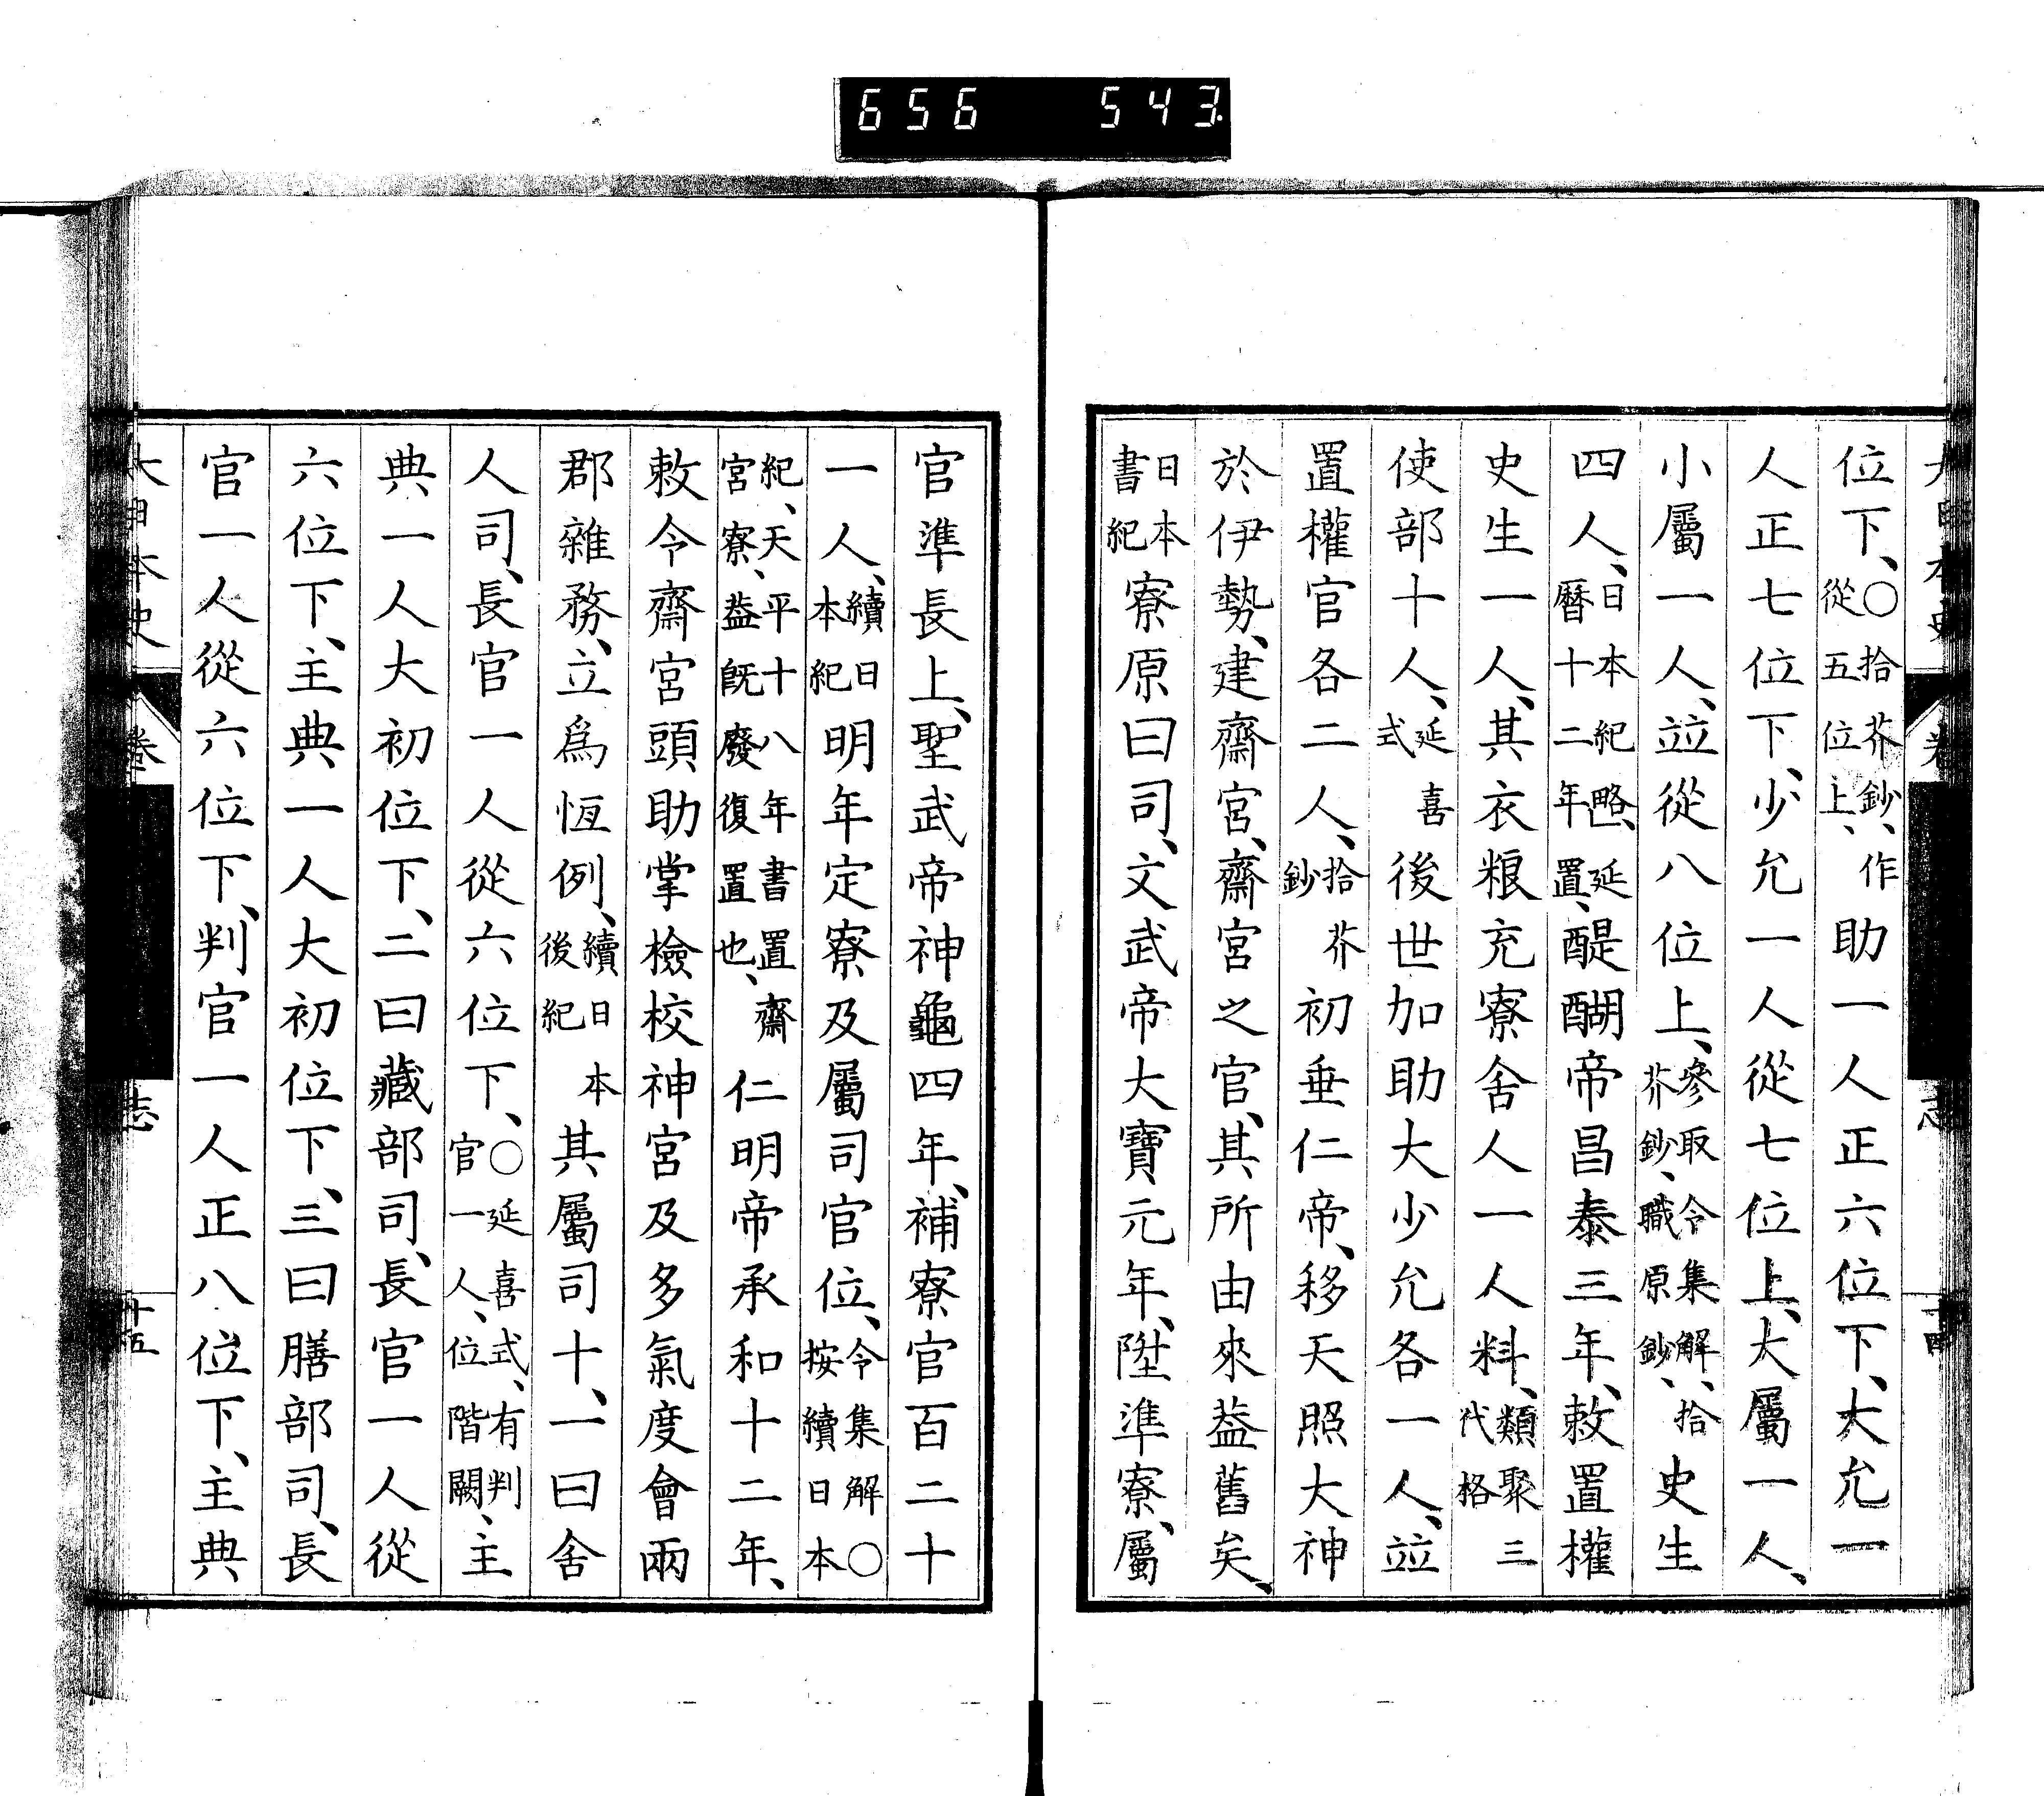 656 543
位下、〇拾芥鈔、作從五位上、助一人正六位下、大允一
人正七位下、少允一人從七位上、大屬一人、
小屬一人、竝從八位上、參取令集解、拾芥鈔、職原鈔、史生
四人、日本紀略、延曆十二年置、醍醐帝昌泰三年、敕置權
史生一人、其衣粮充寮舍人一人料、類聚三代格
使部十人、延喜式後世加助大少允各一人、竝
置權官各二人、拾芥鈔初垂仁帝、移天照大神
於伊勢、建齋宮、齋宮之官、其所由來葢舊矣、
日本書紀寮原曰司、文武帝大寶元年、陞準寮、屬
官準長上、聖武帝神龜四年、補寮官百二十
一人、續日本紀明年定寮及屬司官位、令集解〇按續日本
紀、天平十八年書置齋宮寮、葢旣廢復置也、仁明帝承和十二年、
敕令齋宮頭助掌檢校神宮及多氣度會兩
郡雜務、立爲恆例、續日本後紀其屬司十、一曰舍
人司、長官一人從六位下、〇延喜式、有判官一人、位階闕、主
典一人大初位下、二曰藏部司、長官一人從
六位下、主典一人大初位下、三曰膳部司、長
官一人從六位下、判官一人正八位下、主典
大日本史
卷
志
十五